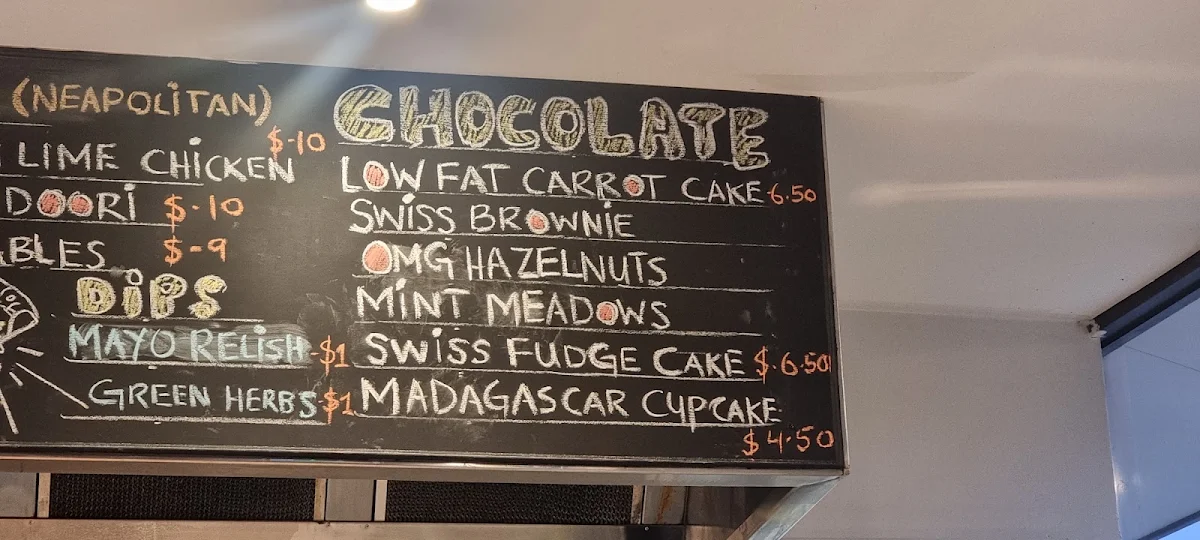 (NEAPOLITAN)
LIME CHICKEN $-10
DOORI $-10
ABLES $-9
DIPS
MAYO RELISH -$1
GREEN HERBS $1
CHOCOLATE
LOW FAT CARROT CAKE 6.50
SWISS BROWNIE
OMG HAZELNUTS
MINT MEADOWS
SWISS FUDGE CAKE $.6.50
MADAGASCAR CUPCAKE
$4.50